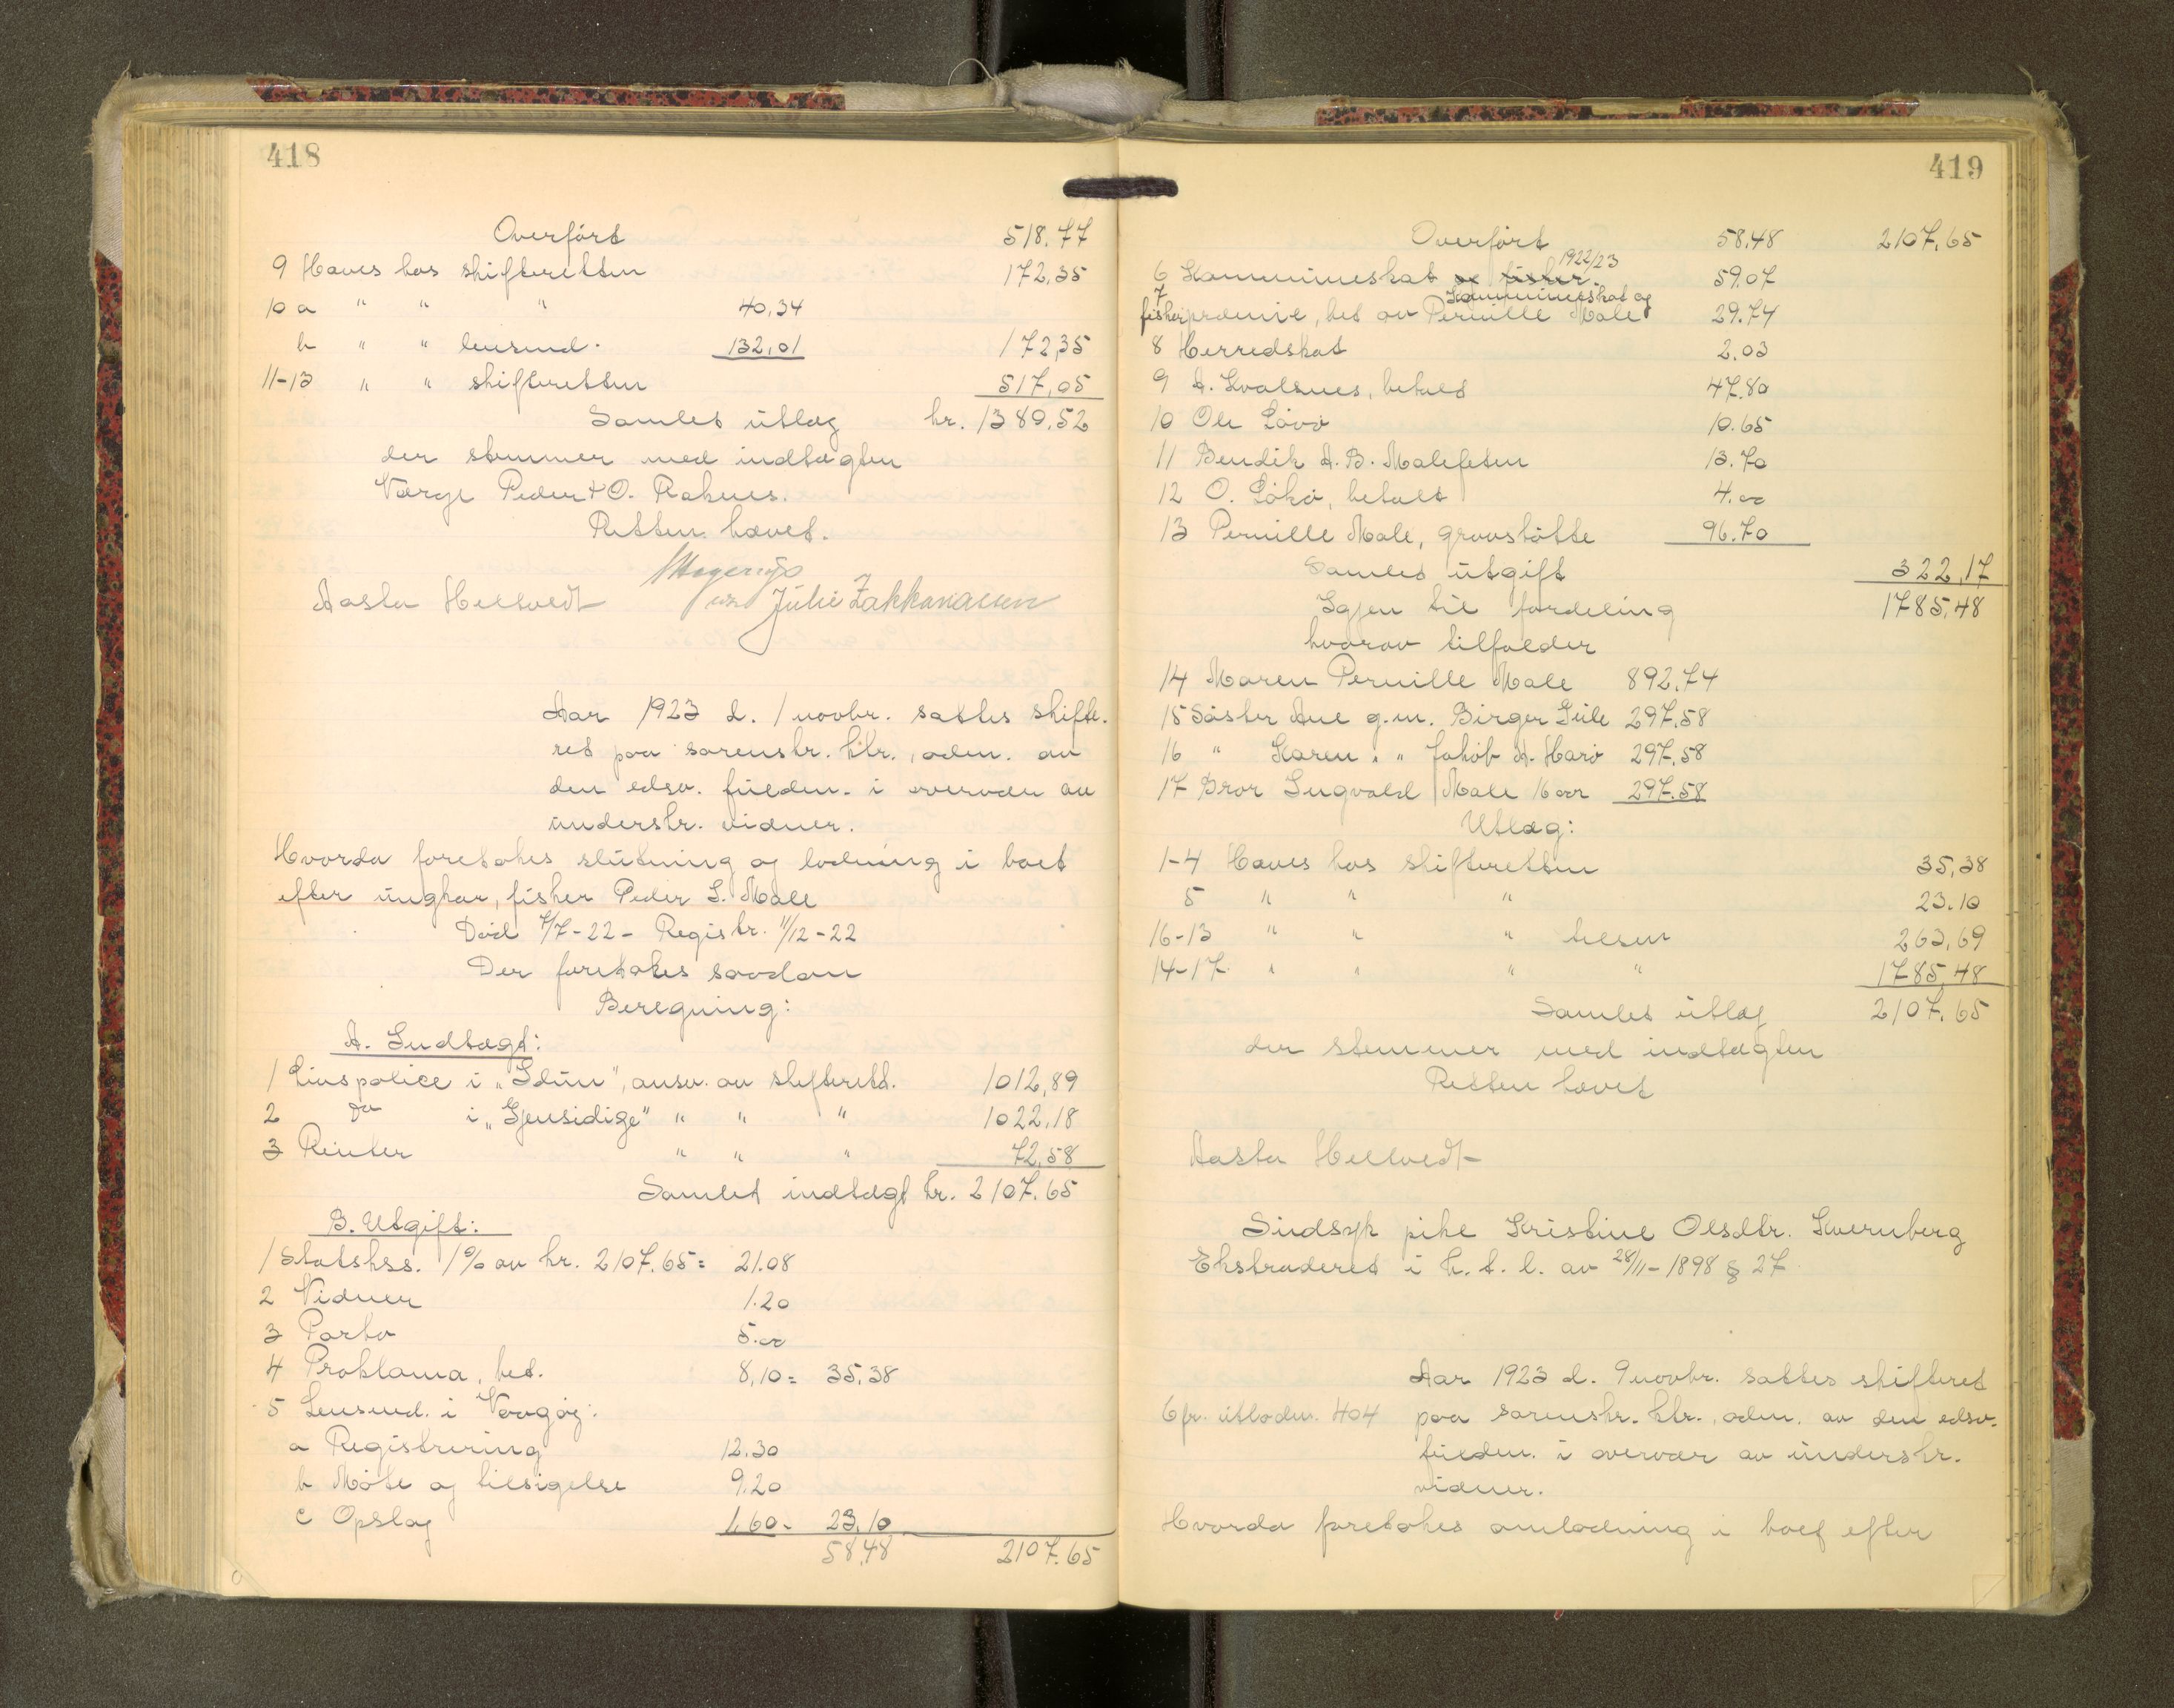 418
Overført 518.77
9 Haves hos skifteretten 172,35
10 a " " " 40,34
b " " lensmd. 132,01 172,35
11-13 " " skifteretten 517,05
Samlet utlæg kr. 1389,52
der stemmer med indtægten
Værge Peder O. Raknes.
Retten hævet.
Aasta Hellvedt Julie Zakkariassen
Aar 1923 d. 1 novbr. sattes skifte-
ret paa sorenskr. ktr., adm. av
den edsv. fuldm. i overvær av
underskr. vidner.
Hvorda foretakes slutning og lodning i boet
efter ungkar, fisker Peder L. Male
Død 7/7-22 - Registr. 11/12-22
Der foretakes saadan
Beregning:
A. Indtægt:
1 Livspolice i "Idun", ansv. av skifterett. 1012,89
2 do i "Gjensidige" " " " 1022,18
3 Renter " " " 72,58
Samlet indtægt kr. 2107.65
B. Utgift:
1 Statskss. 1% av kr. 2107.65 = 21.08
2 Vidner 1.20
3 Porto 5.00
4 Proklama, bet. 8,10 = 35,38
5 Lensmd. i Vaagøy:
a Registrering 12.30
b Møte og tilsigelse 9.20
c Opslag 1,60 = 23,10
58,48 2107.65
419
Overført 58,48 2107,65
1922/23
6 Kommuneskat og fisker 59.07
7 Kommuneskat og
fiskerpræmie, bet av Pernille Male 29.74
8 Herredskat 2.03
9 A. Kvalsnes, betalt 47.80
10 Ole Løvø 10.65
11 Bendik A. B. Malefeten 13.70
12 O. Løkø, betalt 4.00
13 Pernille Male, gravstøtte 96.70
Samlet utgift 322,17
Igjen til fordeling 1785,48
hvorav tilfalder
14 Maren Pernille Male 892.74
15 Søster Ane g.m. Birger Gule 297.58
16 " Karen " " Jakob A. Harø 297.58
17 Bror Ingvald Male 16 aar 297.58
Utlæg:
1-4 Haves hos skifteretten 35,38
5 " " " 23.10
16-13 " " " 263,69
14-17 " " " " 1785,48
Samlet utlæg 2107,65
der stemmer med indtægten
Retten hævet
Aasta Hellvedt
Sindsyk pike Kristine Olsdtr. Kvernberg
Ekstraderet i h. t. l. av 28/11-1898 § 27.
Aar 1923 d. 9 novbr. sattes skifteret
Cfr. utlodn. 404 paa sorenskr. ktr., adm. av den edsv.
fuldm. i overvær av underskr.
vidner.
Hvorda foretakes omlodning i boet efter